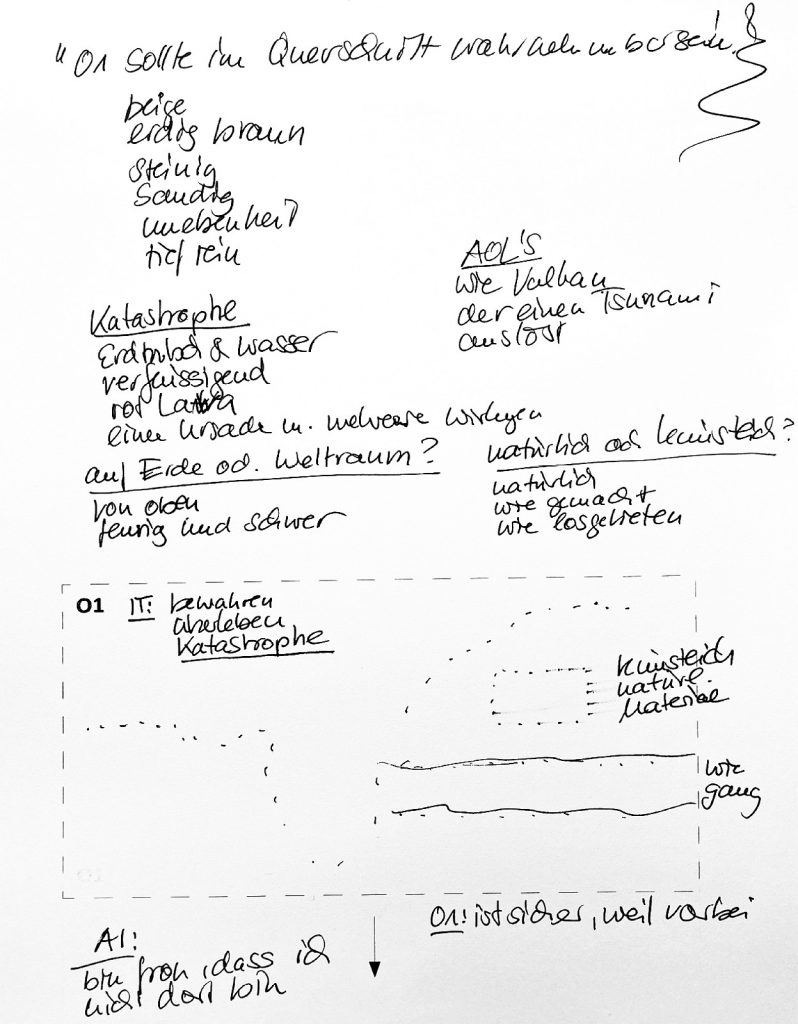 "O1 sollte im Querschnitt wahrnehmbar sein.
beige
erdig braun
steinig
sandig
unebenheit
tief rein
AOL's
wie Vulkan
der einen Tsunami
auslöst
Katastrophe
Erdbebd & Wasser
verflüssigend
rot Lava
eine Ursache u. mehrere Wirkungen
auf Erde od. Weltraum?
von oben
feurig und schwer
natürlich od künstlich?
natürlich
wie gemacht
wie losgetreten
O1 IT: bewahren
überleben
Katastrophe
künstlich
natürl.
Material
wie
gang
O1: ist sicher, weil vorbei
AI:
bin froh, dass ich
nicht dort bin